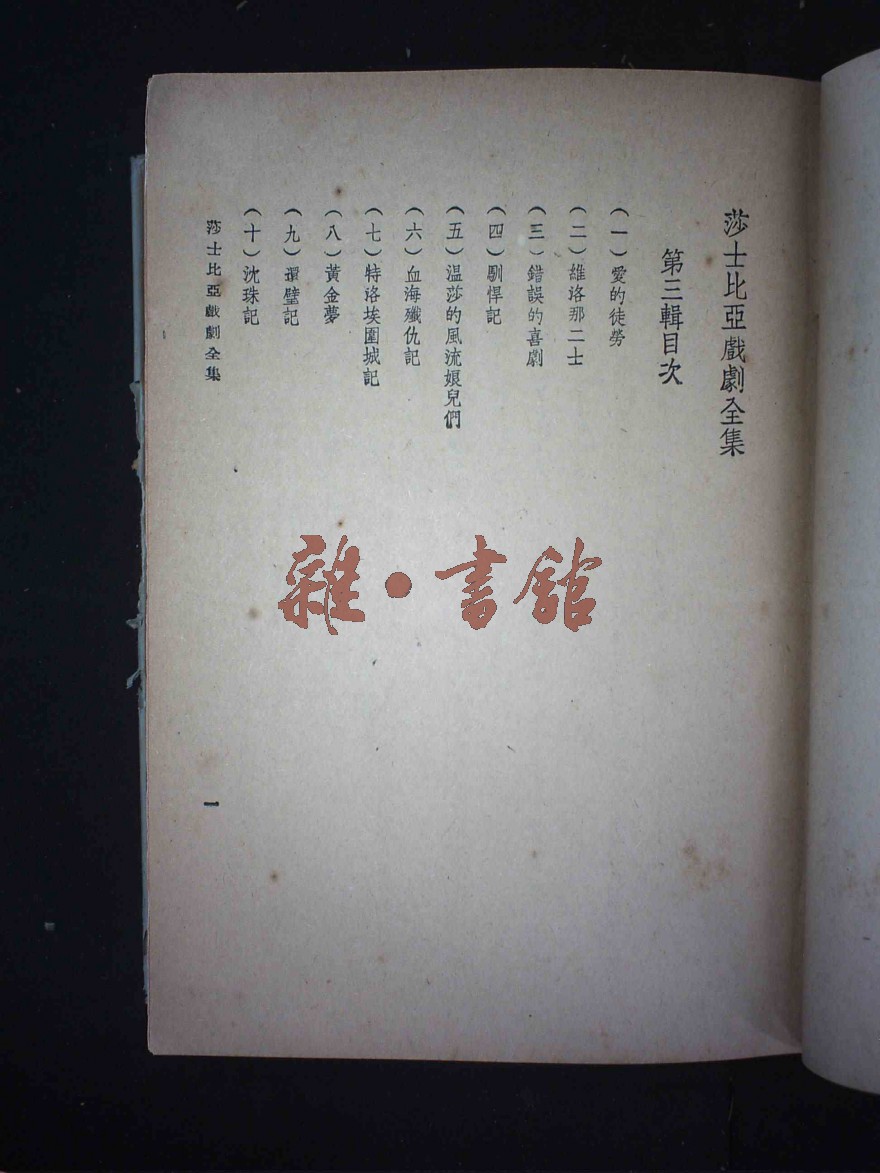 莎士比亞戲劇全集
第三輯目次
（一）愛的徒勞
（二）維洛那二士
（三）錯誤的喜劇
（四）馴悍記
（五）温莎的風流娘兒們
（六）血海殲仇記
（七）特洛埃圍城記
（八）黃金夢
（九）還璧記
（十）沈珠記
莎士比亞戲劇全集
一
雜·書館